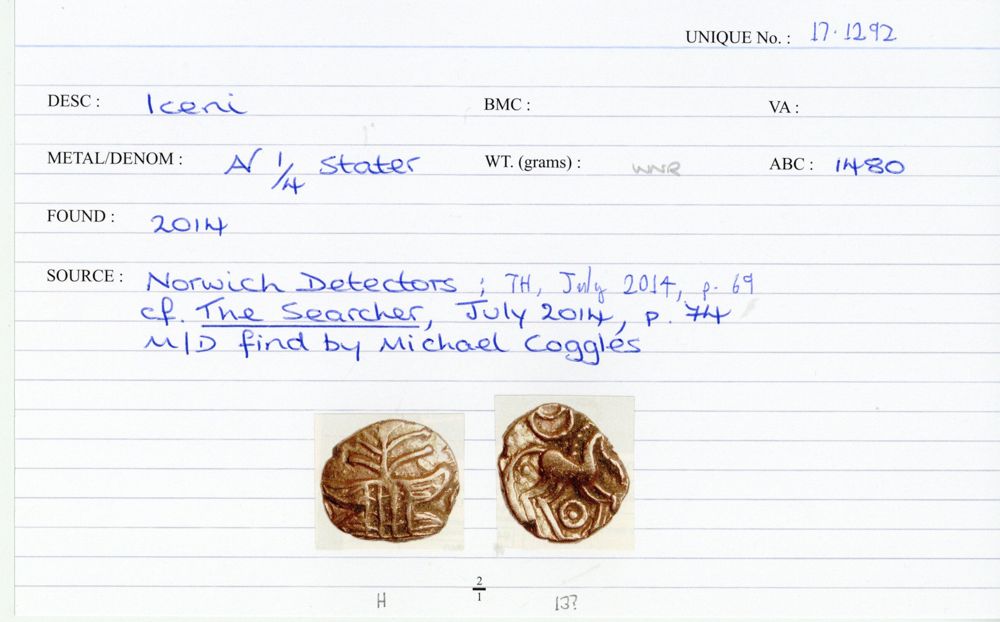 UNIQUE No. : 17.1292
DESC : Iceni BMC : VA :
METAL/DENOM : N 1/4 Stater WT. (grams) : WNR ABC : 1480
FOUND : 2014
SOURCE : Norwich Detectors ; TH, July 2014, p. 69
cf. The Searcher, July 2014, p. 74
M/D find by Michael Coggles
2/1
H 13?